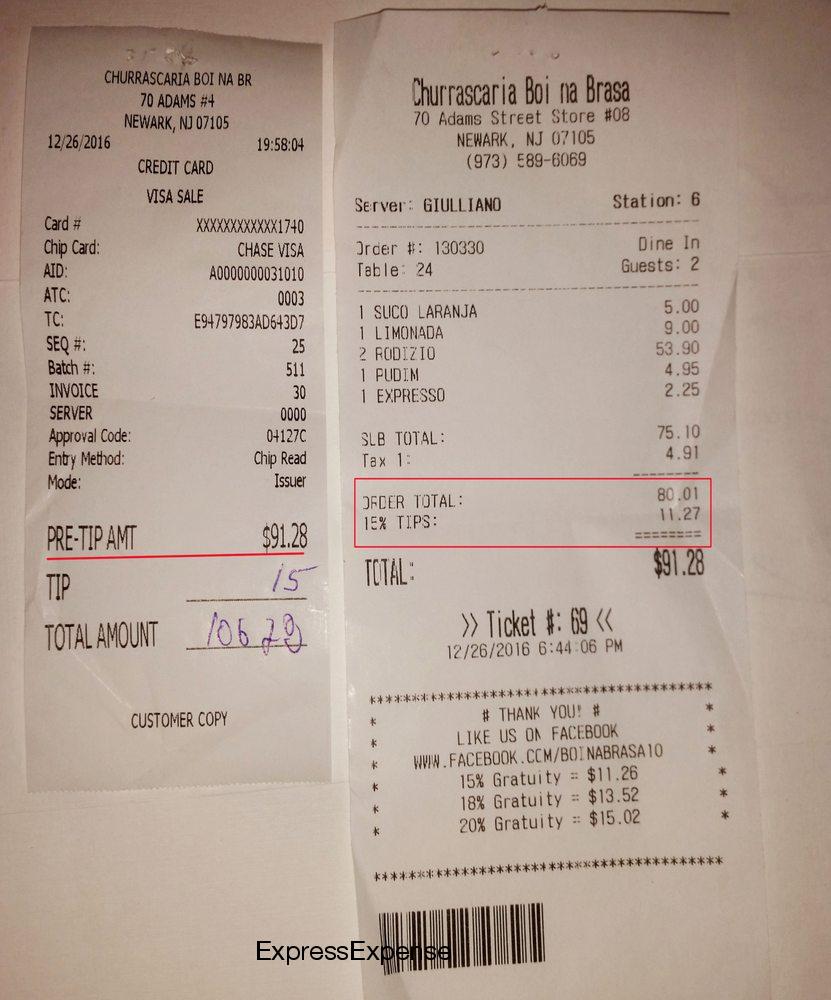 CHURRASCARIA BOI NA BR
70 ADAMS #4
NEWARK, NJ 07105
12/26/2016 19:58:04
CREDIT CARD
VISA SALE
Card # XXXXXXXXXXXX1740
Chip Card: CHASE VISA
AID: A0000000031010
ATC: 0003
TC: E94797983AD643D7
SEQ #: 25
Batch #: 511
INVOICE 30
SERVER 0000
Approval Code: 04127C
Entry Method: Chip Read
Mode: Issuer
PRE-TIP AMT $91.28
TIP 15
TOTAL AMOUNT 106 28
CUSTOMER COPY
Churrascaria Boi na Brasa
70 Adams Street Store #08
NEWARK, NJ 07105
(973) 589-6069
Server: GIULLIANO Station: 6
Order #: 130330 Dine In
Table: 24 Guests: 2
1 SUCO LARANJA 5.00
1 LIMONADA 9.00
2 RODIZIO 53.90
1 PUDIM 4.95
1 EXPRESSO 2.25
SUB TOTAL: 75.10
Tax 1: 4.91
ORDER TOTAL: 80.01
15% TIPS: 11.27
TOTAL: $91.28
>> Ticket #: 69 <<
12/26/2016 6:44:06 PM
# THANK YOU! #
LIKE US ON FACEBOOK
WWW.FACEBOOK.COM/BOINABRASA10
15% Gratuity = $11.26
18% Gratuity = $13.52
20% Gratuity = $15.02
ExpressExpense